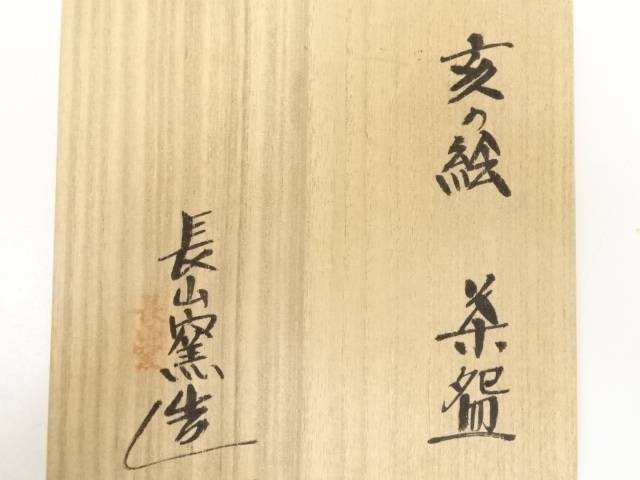 亥の絵 茶盌
長山窯造